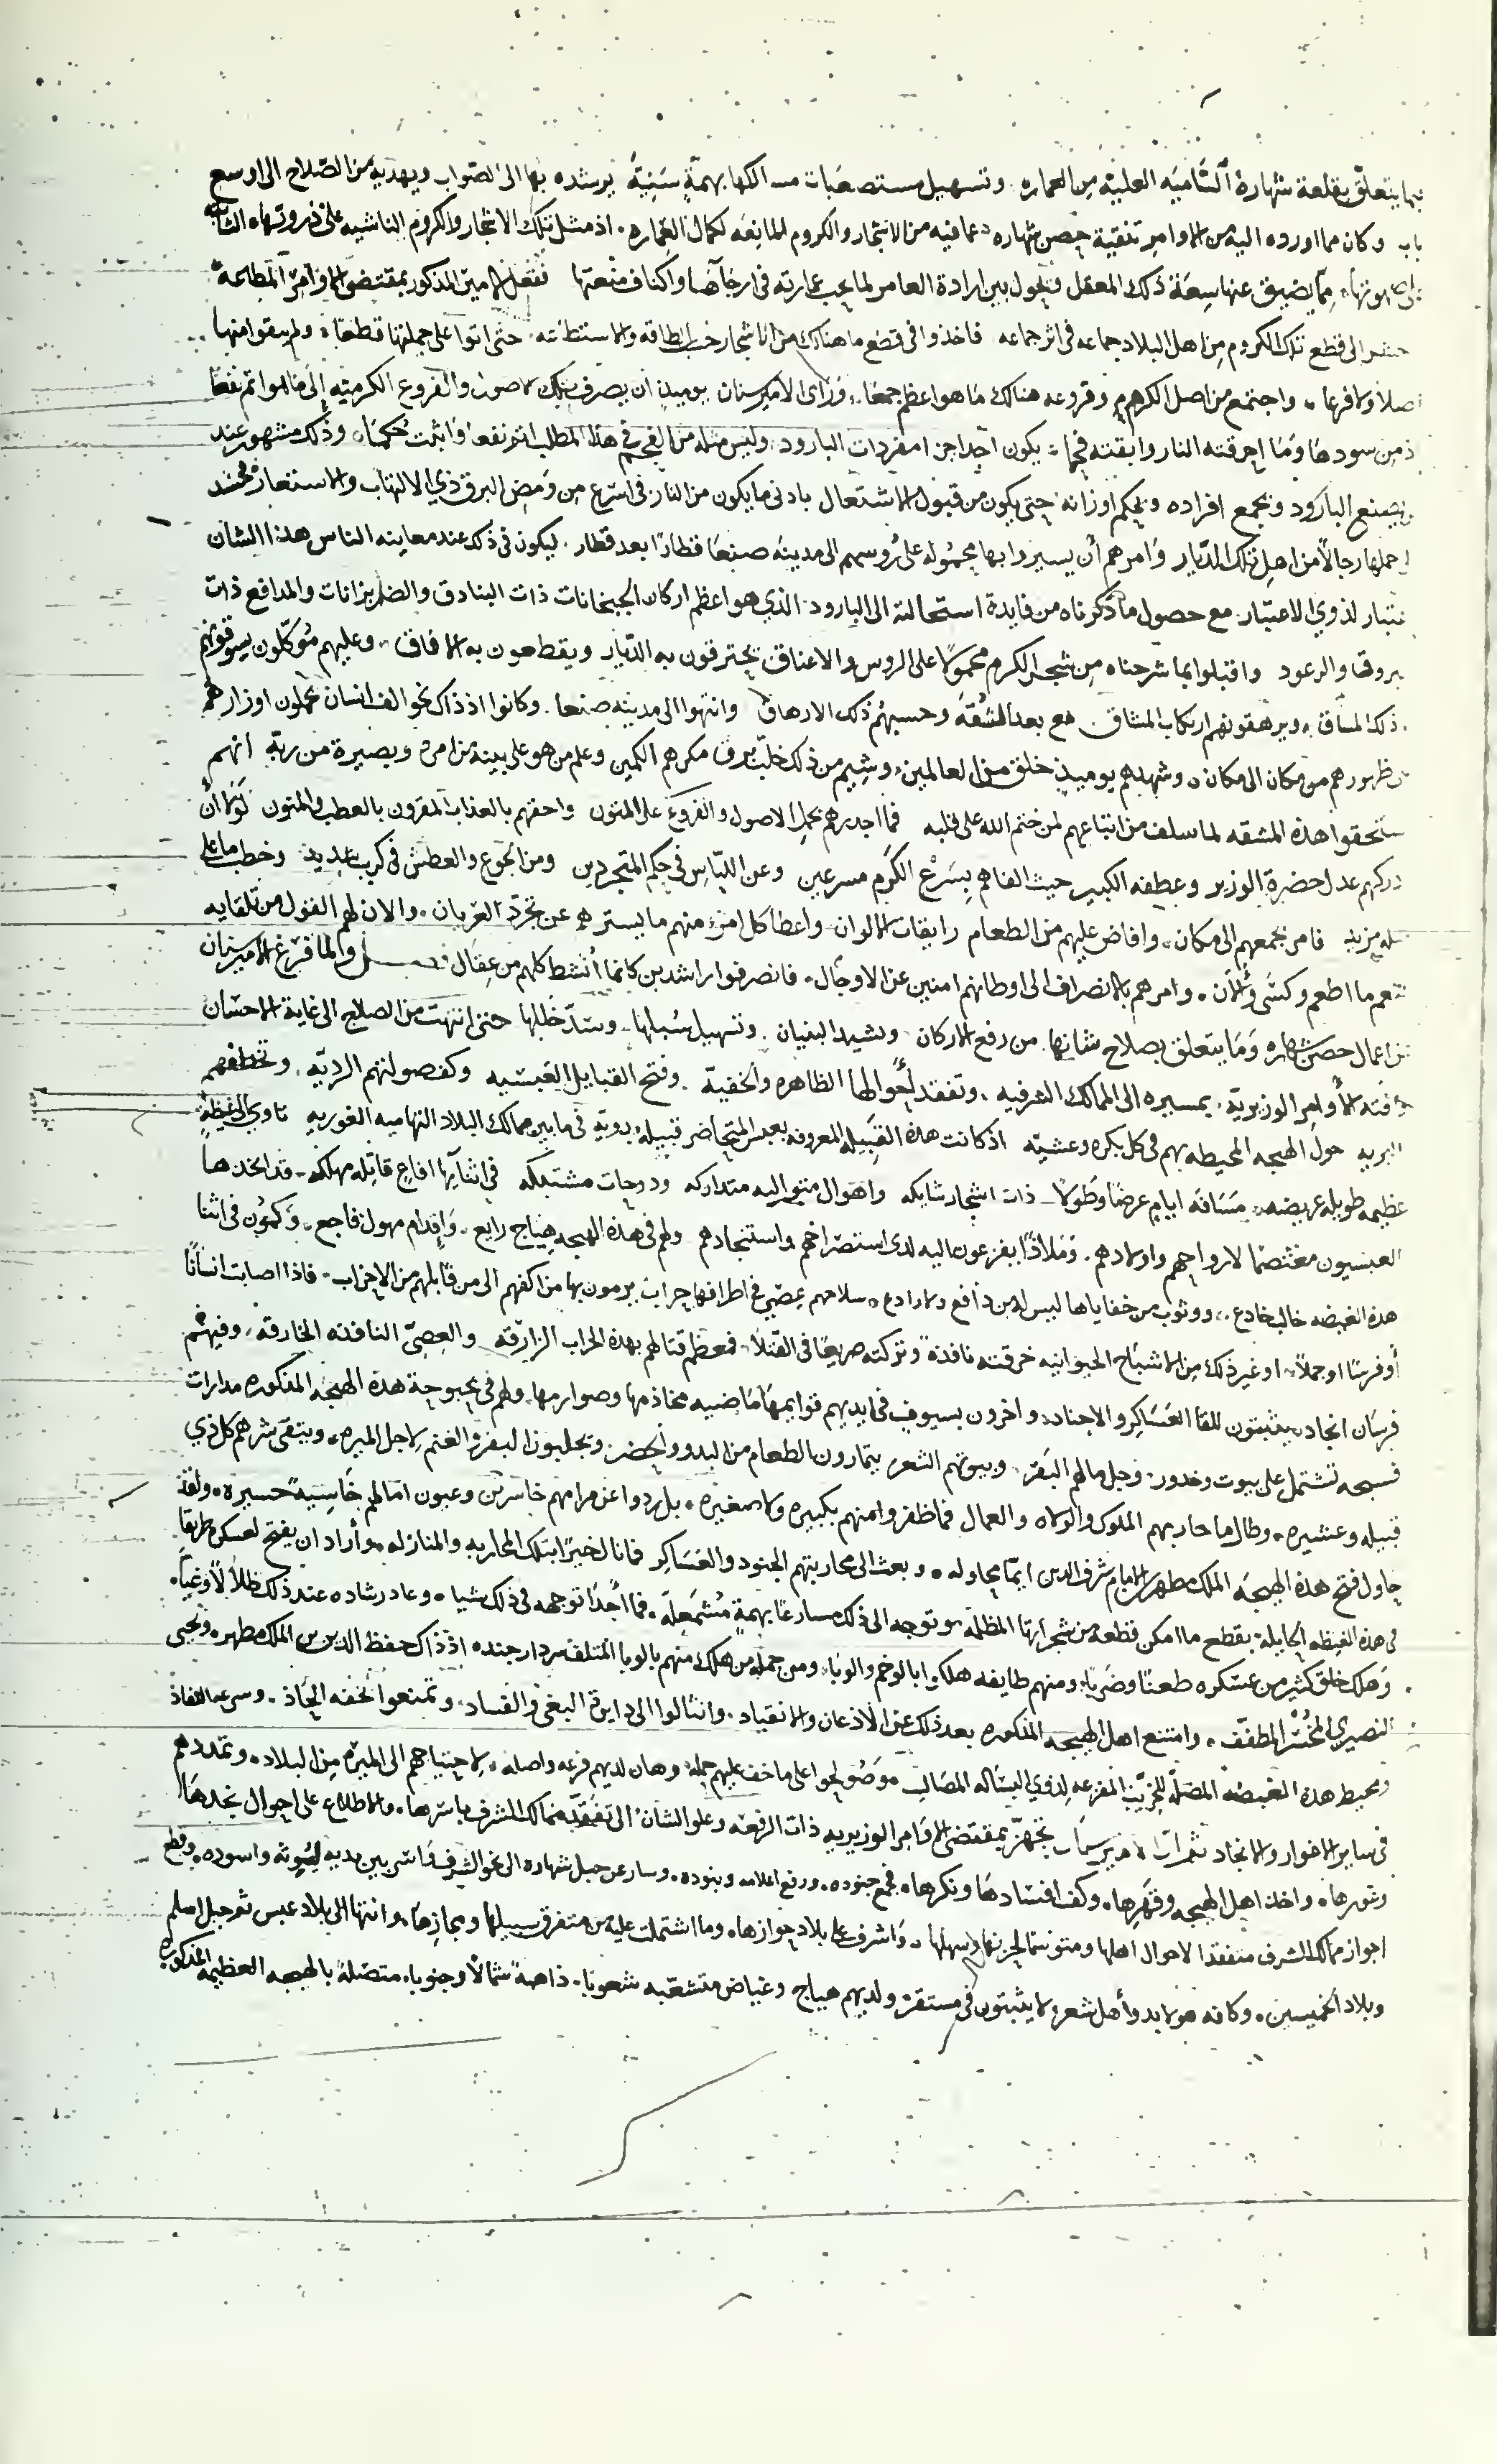 يتعلق بقلعة شهارة الشاميه العليه من العماره وتسهيل مستصعبات مسالكها بهمةٍ سَنِيّة يرشده بها الى الصواب ويهديه من الصّلاح الى اوسع
باب وكان مما اورده اليه من الاوامر تنقية حصن شهاره عما فيه من الاشجار والكروم المانِعَه لكمال العِمَاره. اذ مثل تلك الاشجار والكروم الناشيه على ذروتها
مما يضيق عنها سِعَة ذلك المعقل ويحول بين ارادة العامر لما يجب عمارته في ارجآئها واكناف منْعتها ففعل الامير المذكور بمقتضى الاوامر المطاعة
الى قطع تلك الكروم مِن اهل البلاد جماعه في اثر جماعه فاخذوا في قطع ما هنالك من الاشجار حسب الطاقه والاستطاعه. حتى اتوا على جملتها قطعًا. ولم يبقوا منها
اصلا ولا فرعا. واجتمع من اصل الكرم وفروعه هنالك مَا هو اعظم جمعًا. ورَاى الامير سنان يوميذٍ ان يصرف تلك الاصول والفروع الكرميّه الى ما هو اتم نفعا
اذ من سودها ومَا احرقته النار وابقته فحما. يكون احدَ اجزا مفردات البارود. وليس مثله من الفحم في هذا المطلب اتم نفعا واثبت حُكمًا. وذلك مشهور عند
من يصنع البارود ويجمع افراده ويحكم اوزانه حتى يكون من قبول الاشتعال بادنى ما يكون من النار. في اسرع من وَمَض البرق ذي الالتهاب والاستعار
حملها رجالاً من اهل تلك الدّيار وَامرهم أن يسيروا بها محموله على رُوسهم الى مدينه صنعَا قطارًا بعد قطار. ليكون في ذلك عند معاينه الناس هذا الشان
لذوي الاعتبار. مع حصول ما ذكرناه من فايدة استحالته الى البارود. الذي هو اعظم اركان الجبخانات ذات البنادق والضربزانات والمدافع ذات
بروقها والرعود واقبلوا بما شرحناه من شجر الكرم محمولًا على الروس والاعناق يخترقون به الدّيار ويقطعون به الافاق. وعليهم مُوَكّلون يسوقونهم
ذلك المساق. ويرهقونهم ارتكاب المشاق. مع بعد الشُقّه وحسبهم ذلك الارهاق وانتهوا الى مدينه صنعا. وكانوا اذ ذاك نحو الف انسان يحملون اوزارهم
على ظهورهم من مكان الى مكان. وشهدهم يوميذٍ خلق من العالمين. وشِيم من ذلك خلّب برق مكرهم الكمين وعلم من هو على بينه من امره وبصيرة من ربّه انهم
استحقوا هذه المشقه لما سلف من اتباعهم لمن ختم الله على قلبه فما اجدرهم بحمل الاصول والفروع على المتون واحقهم بالعذاب المقرون بالعطب والمنون لولا أن
ادركهم عدل حضرة الوزير وعطفه الكبير حيث الفاهم بشرع الكرم مسرعين وعن اللبّاس في حكم المتجردين ومن الجوع والعطش في كرب شديد وخطب ما على
مزيد فامر بجمعهم الى مكان. وافاض عليهم من الطعام رايقات الالوان. واعطا كل امرء منهم ما يستره عن تجرّد العريان. والان لهم القول من تلقايه
فنعم ما اطعم وكسَى وألآن. وامرهم بالانصراف الى اوطانهم امنين عن الاوجال. فانصرفوا راشدين كانما أنشط كلهم من عِقال فصل ولما فرغ الامير سنان
من اعمال حصن شهاره وَمَا يتعلق بصلاح شانها. من رفع الاركان وتشييد البنيان. وتسهيل سُبلها. وسدّ خللها حتى انتهت من الصلاح الى غاية الاحسَان
وافته الأوامر الوزيريّة. بمسيره الى الممالك الشرفيه. وتفقد أحوالها الظاهره والخفيّة. وفتح القبايل العَبسيّه وكف صولتهم الرديّه. وتخطفهم
البريه حول الهيجه المحيطه بهم في كل بكره وعشيّه اذ كانت هذه القبيله المعروفه بعبس المتحاضر قبيلةً بدويّة في ما بين ممالك البلاد التهاميه الغوريه تاوي الى غيظةٍ
عظيمه طويله عريضه. مسَافة ايامٍ عرضًا وطولا. ذات اشجار شايكه واهوال متواليه متداركه ودوحات مشتبكه في اثنآيها افاعٍ قاتله مهلكه. قد اتخذها
العبسيون معتصمًا لارواحهم واولادهم. ومَلاذًا يفزعون اليه لدى استصراخهم واستنجادهم ولهم في هذه الهيجه هِيَاج رايع. وَاقدام مهول فاجع. وَكمُون في اثنا
هذه الغيضه خالب خادع. ووثوب من خفاياها ليس له من دافع ولا رادع. سلاحهم عِصِيّ في اطرافها حِراب يرمون بها من اكفهم الى من قابلهم من الاحزاب. فاذا اصابت انسانًا
أو فرسًا او جملاً. او غير ذلك مِن الاشباح الحيوانيه خرقته نافذة وتركته صريعًا في القتلا. فمعظم قتالهم بهذه الحراب الزارقه والعِصِيّ النافذه الخارقه. وفيهم
فرسَان انجاد. يثبتون للقا العَسَاكر والاجناد. واخرون بسيوف في ايديهم قوايمها مَاضيه مخاذمها وصوارمها. ولهم في بحبوحة هذه الهيجه المذكوره مدارات
فسيحه تشتمل على بيوت وخدور. وجل مالهم البقر. وبيوتهم الشعر يمتارون الطعام من البدو والحضر. ويجلبون البقر والغنم لاجل الميره. ويتقى شرهم كل ذي
قبيله وعشيره. وطال ما حاربهم الملوك والولاه والعمال فما ظفروا منهم بكبيره ولا صغيره. بل ردوا عن مرامهم خاسرين وعيون امالهم خَاسِيَةً حسيره. ولقد
حاول فتح هذه الهيجه الملك مطهر بن الامام شرف الدين ايمّا محاوله. وبعث الى محاربتهم الجنود والعَسَاكر فما نال خيرًا بتلك المحاربه والمنازله. وأراد ان يفتح لعسكره طريقا
في هذه الغيظه الحايلة. بقطع ما امكن قطعه من شجراتها المظلّه. وتوجه الى ذلك مسارعًا بهمةٍ مُشمَعِلّه. فما أجدَا توجهه في ذلك شيا. وعاد رشاده عند ذلك ظلالًا وغيا.
وَهلك خلق كثير من عسكره طعنًا وضربًا. ومنهم طايفه هلكوا بالوخم والوبَا. ومن جمله من هلك منهم بالوبا المُتلف سردار جنده اذ ذاك حفظ الدين بن الملك مطهر. ونجى
النصيري المطفّف. وامتنع اهل الهيجه المذكوره بعد ذلك عن الاذعان والانقياد. وانثالوا الى داير البغي والفساد. وتمنعوا
ومحيط هذه الغيضه المضلّه المفزعه لذوي البسَاله وهان لديهم فرعه واصله. لاحتياجهم الى الميره من البلاد. وتمددهم
في ساير الاغوار والانجاد ثم ان الامير سنان تجهّز بمقتضى الاوامر الوزيريه ذات الرفعه وعلو الشان الى تفقّد ممالك الشرف باسرها. والاطلاع على احوال نجدها
وغورها. واخذ اهل الهيجه وقهرها. وكف افسَادهَا ونكرها. فجمع جنوده. ورفع اعلامه وبنوده. وسار عن جبل شهاره الى نحو الشرف بين يديه ليُوثه واسوده. وقطع
اجواز ممالك الشرف متفقدا لاحوال اهلها ومتوسّمًا لحزنها وسهلها. وَاشرف على بلاد جوازها. وما اشتملت عليه من متفرق سبيلها ومجازها. وانتها الى بلاد عبس ثم جبل اسلم
وبلاد الخميسين. وكافه هولا بدو وأهل شعر ولا يثبتون في مستقر. ولديهم هياج وغياض متشعّبه شعوبًا. ذاهبةً شمالًا وجنوبا. متصلةً بالهيجه العظيمه المذكوره